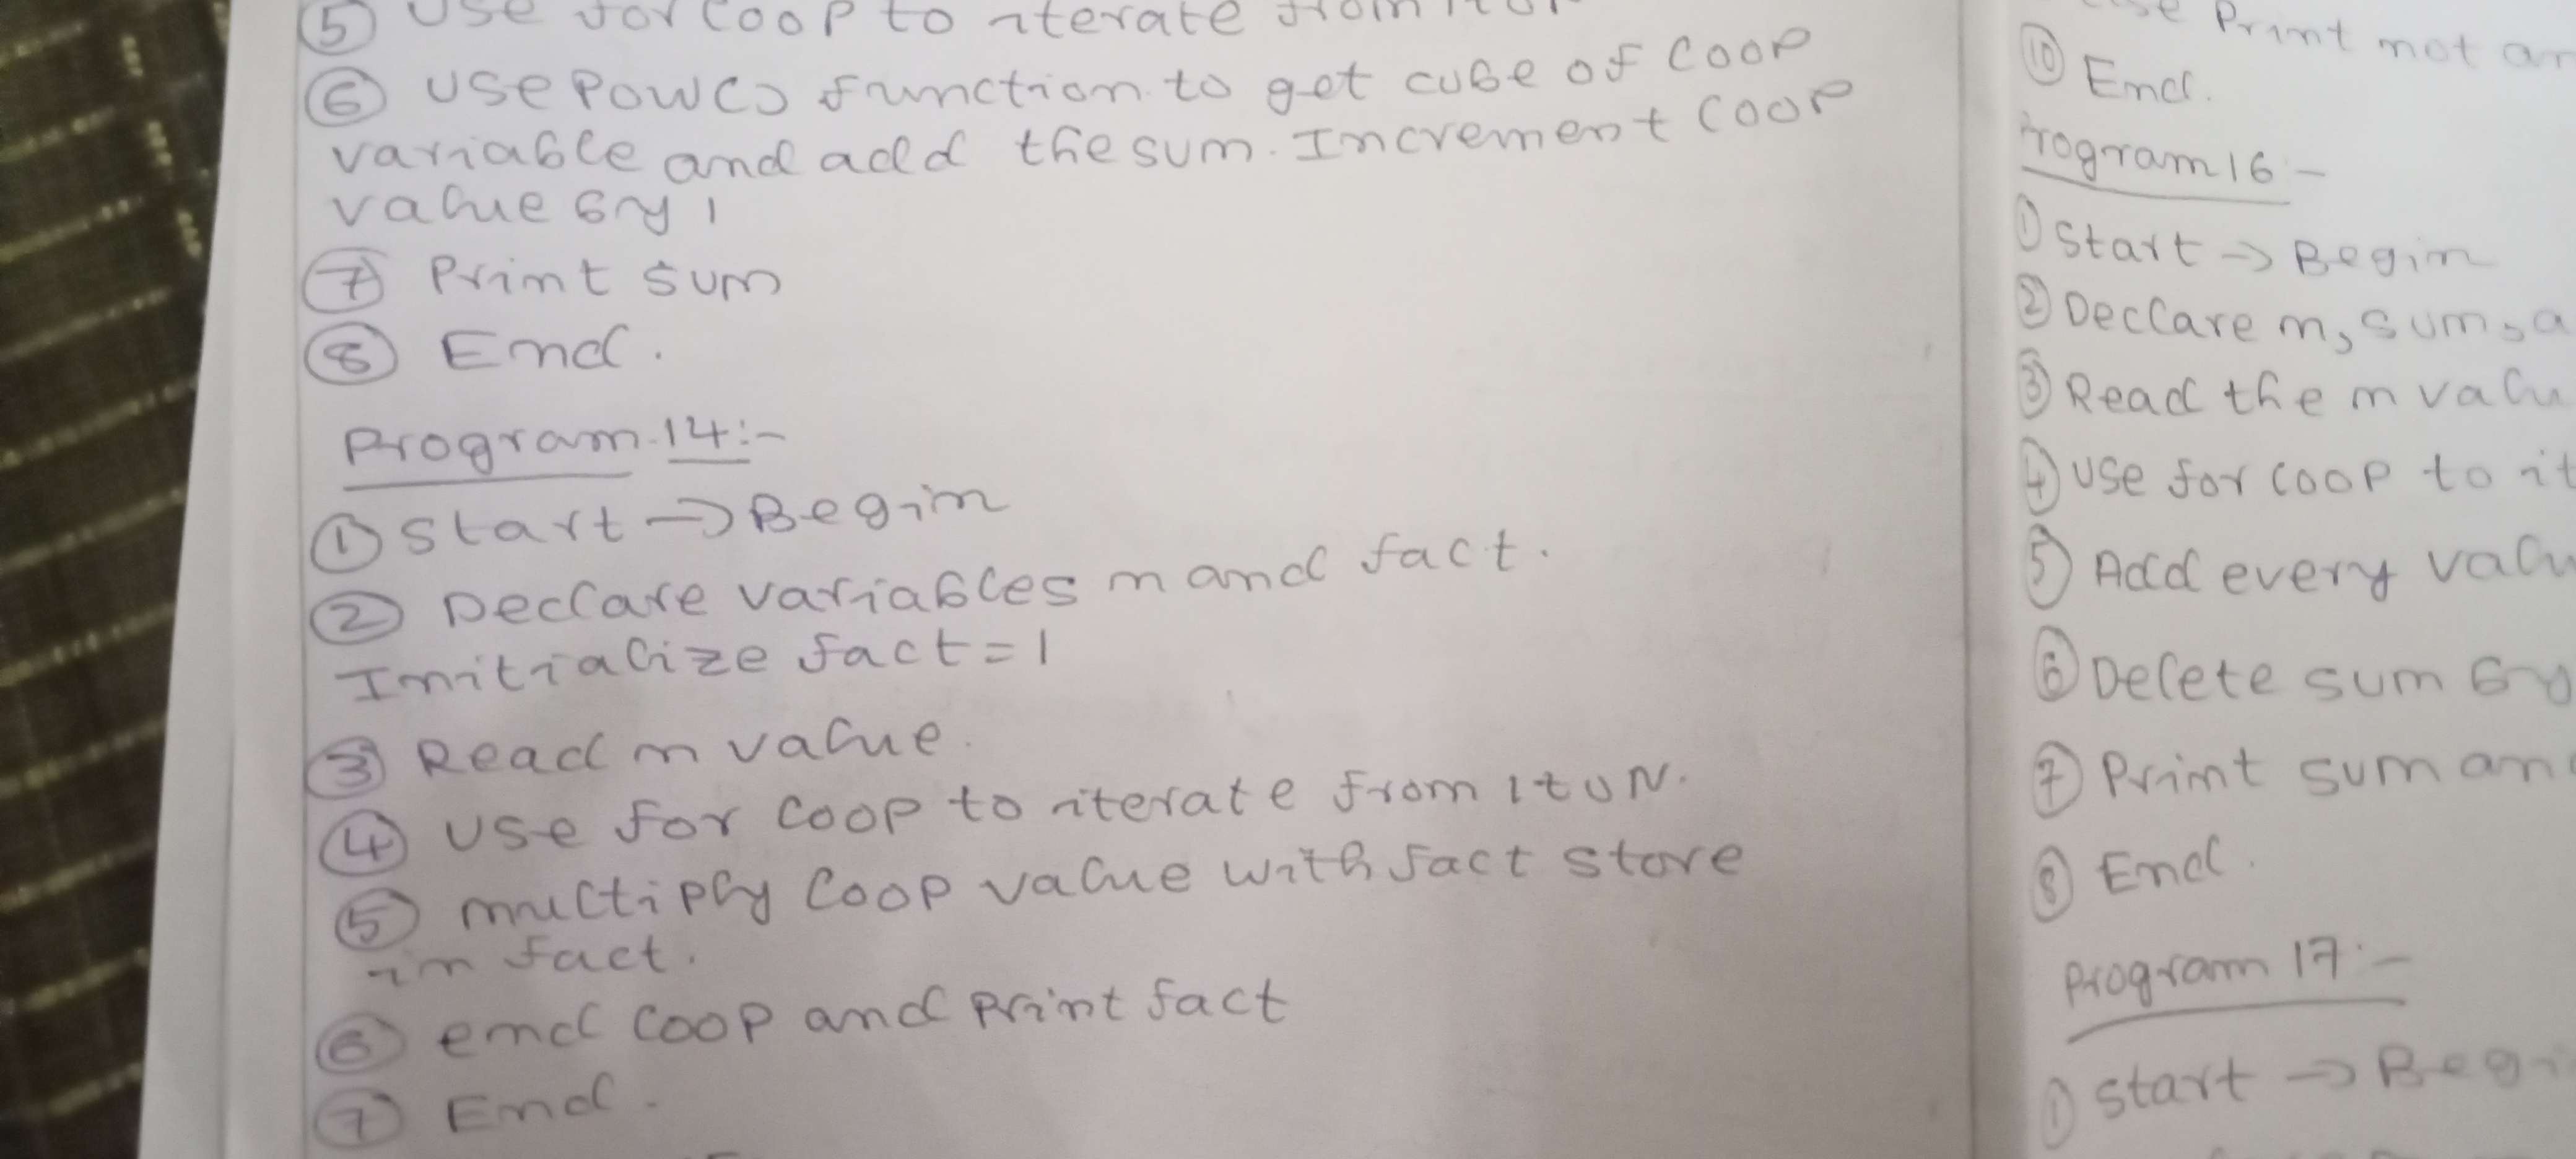 5 Use for loop to iterate from 1 to
6 use pow() function to get cube of loop
variable and add the sum. Increment loop
value by 1
7 Print sum
8 End.
Program 14:-
1 Start → Begin
2 Declare variables n and fact.
Initialize fact = 1
3 Read n value.
4 Use for loop to iterate from 1 to N.
5 multiply loop value with fact store
in fact.
6 end loop and print fact
7 End.
Print not
10 End.
Program 16 -
1 Start → Begin
2 Declare n, sum, a
3 Read the n valu
4 use for loop to it
5 Add every valu
6 Delete sum by
7 Print sum an
8 End.
Program 17:-
1 Start → Begi